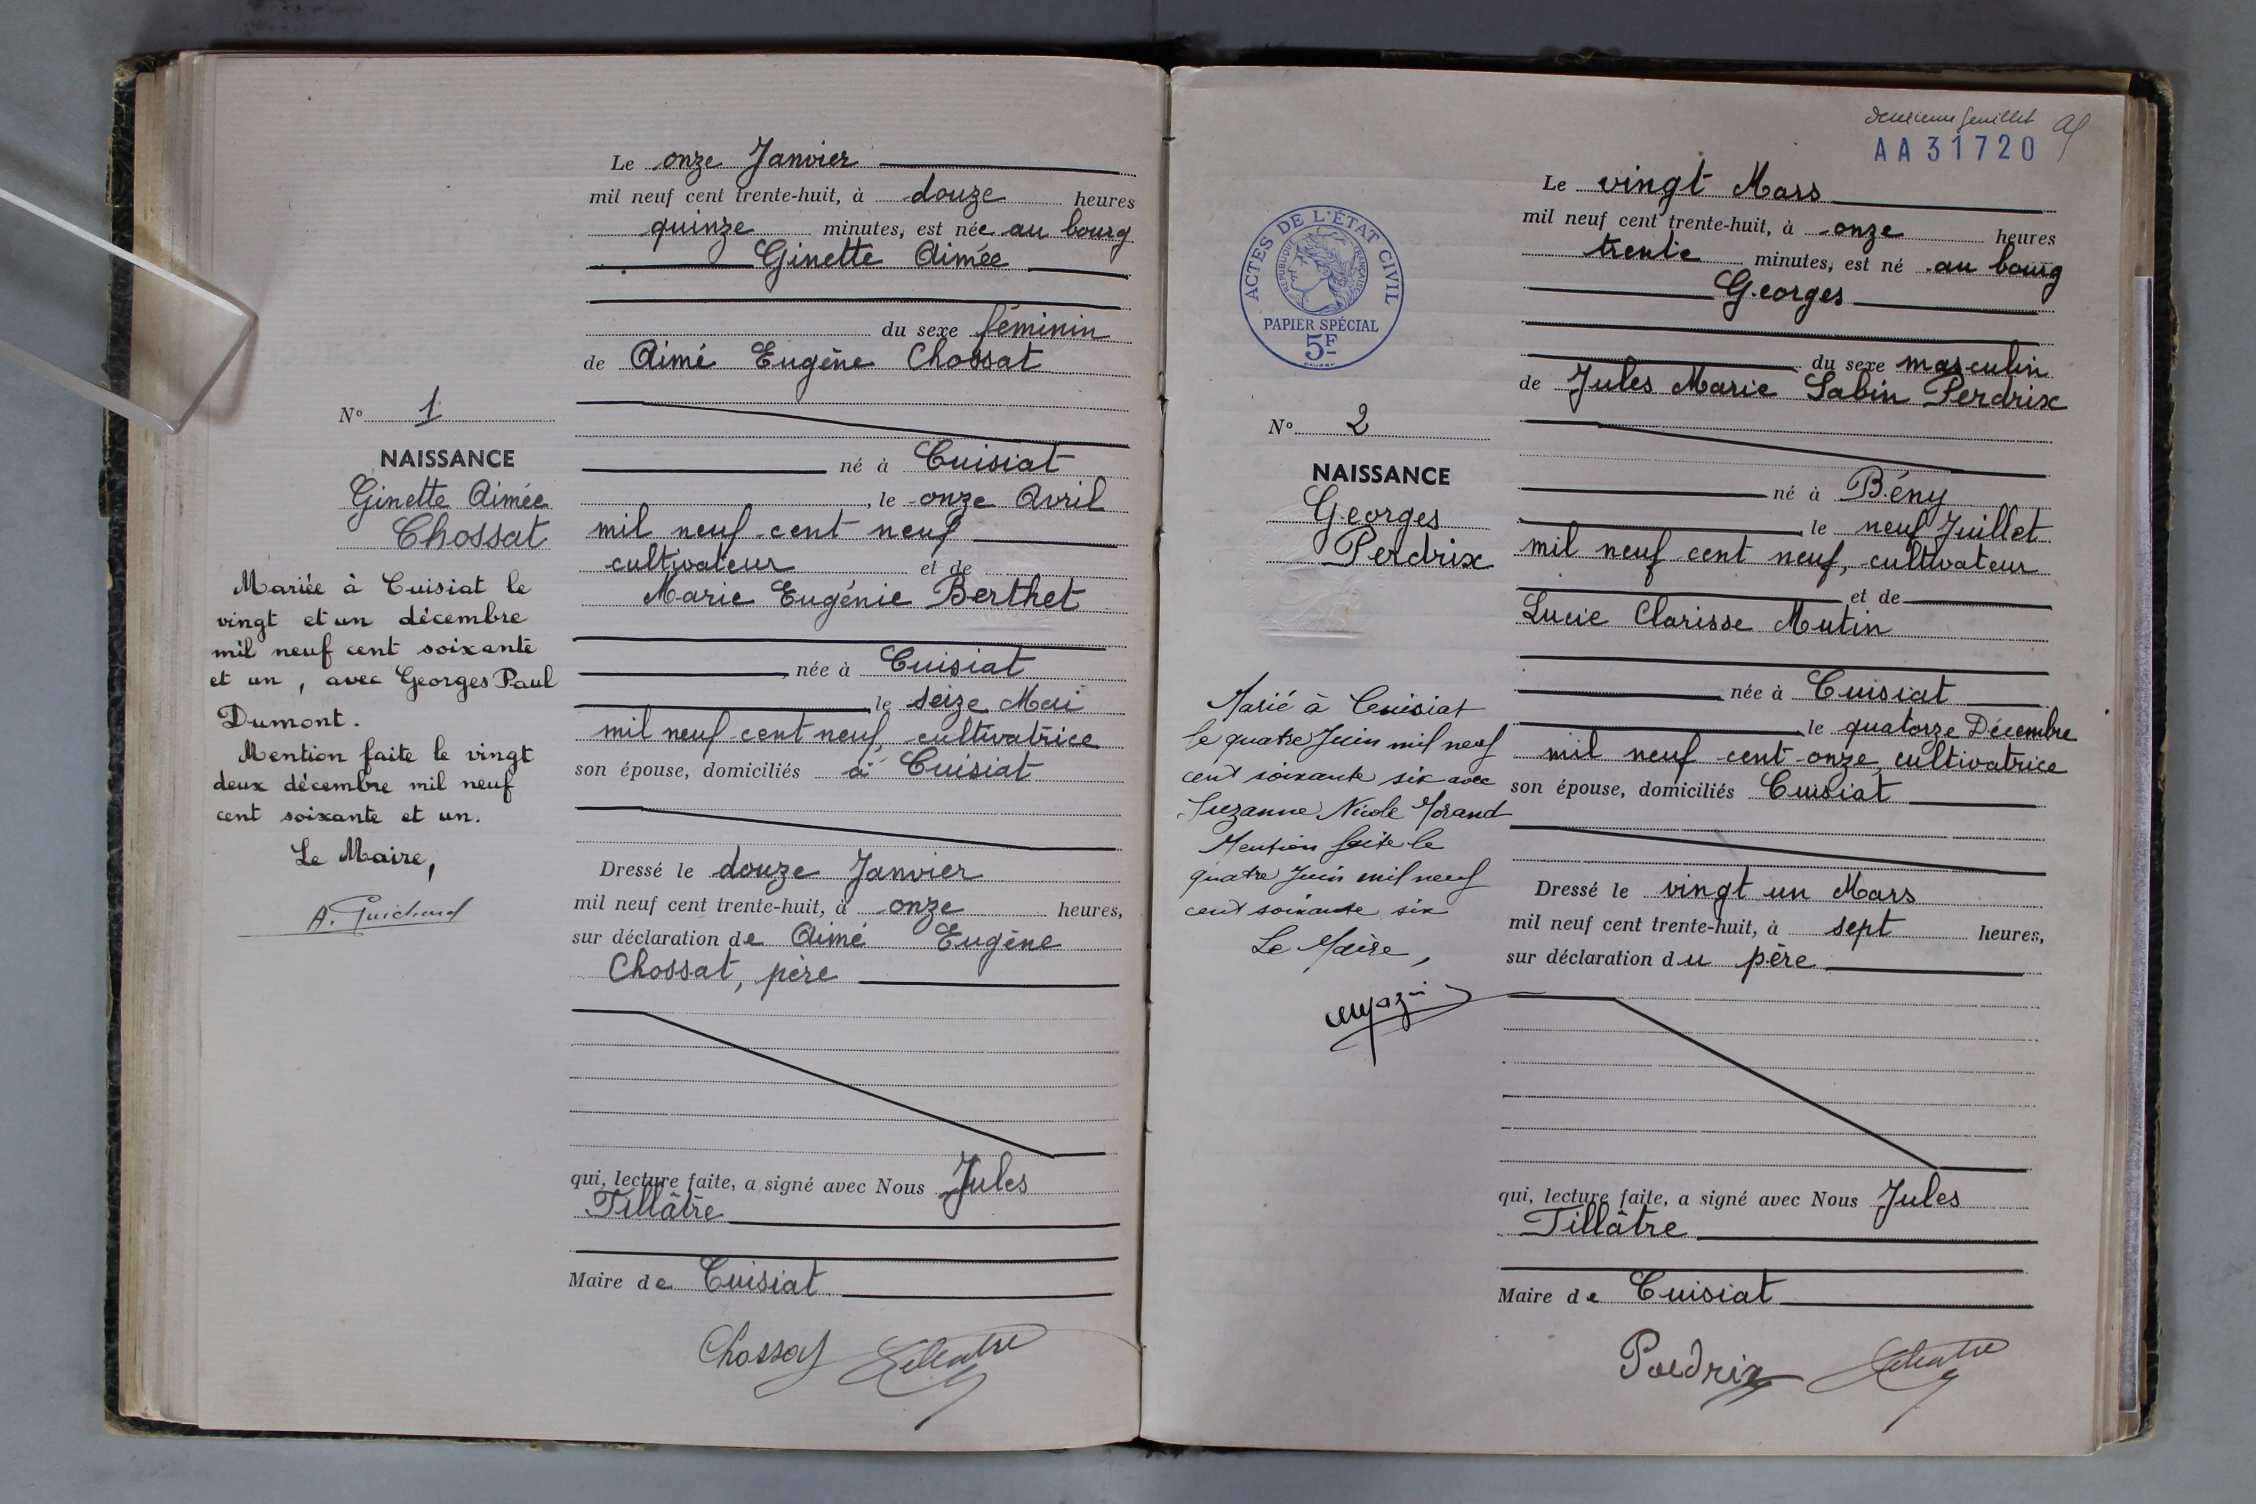 Le onze Janvier
mil neuf cent trente-huit, à douze heures
quinze minutes, est née au bourg
Ginette Aimée
du sexe féminin
de Aimé Eugène Chossat
né à Cuisiat
, le onze Avril
mil neuf cent neuf
cultivateur et de
Marie Eugénie Berthet
née à Cuisiat
le seize Mai
mil neuf cent neuf, cultivatrice
son épouse, domiciliés à Cuisiat
Dressé le douze Janvier
mil neuf cent trente-huit, à onze heures,
sur déclaration de Aimé Eugène
Chossat, père
qui, lecture faite, a signé avec Nous Jules
Tillâtre
Maire de Cuisiat
Chossat Tillatre
N° 1
NAISSANCE
Ginette Aimée
Chossat
Mariée à Cuisiat le
vingt et un décembre
mil neuf cent soixante
et un, avec Georges Paul
Dumont.
Mention faite le vingt
deux décembre mil neuf
cent soixante et un.
Le Maire,
A. Guichard
deuxième feuillet
AA31720
Le vingt Mars
mil neuf cent trente-huit, à onze heures
trente minutes, est né au bourg
Georges
du sexe masculin
de Jules Marie Sabin Perdrix
né à Bény
le neuf Juillet
mil neuf cent neuf, cultivateur
et de
Lucie Clarisse Mutin
née à Cuisiat
le quatorze Décembre
mil neuf cent onze, cultivatrice
son épouse, domiciliés Cuisiat
Dressé le vingt un Mars
mil neuf cent trente-huit, à sept heures,
sur déclaration du père
qui, lecture faite, a signé avec Nous Jules
Tillâtre
Maire de Cuisiat
Perdrix Tillatre
ACTES DE L'ÉTAT CIVIL
RÉPUBLIQUE FRANÇAISE
PAPIER SPÉCIAL
5F
N° 2
NAISSANCE
Georges
Perdrix
Marié à Cuisiat
le quatre Juin mil neuf
cent soixante six avec
Suzanne Nicole Morand
Mention faite le
quatre Juin mil neuf
cent soixante six
Le Maire,